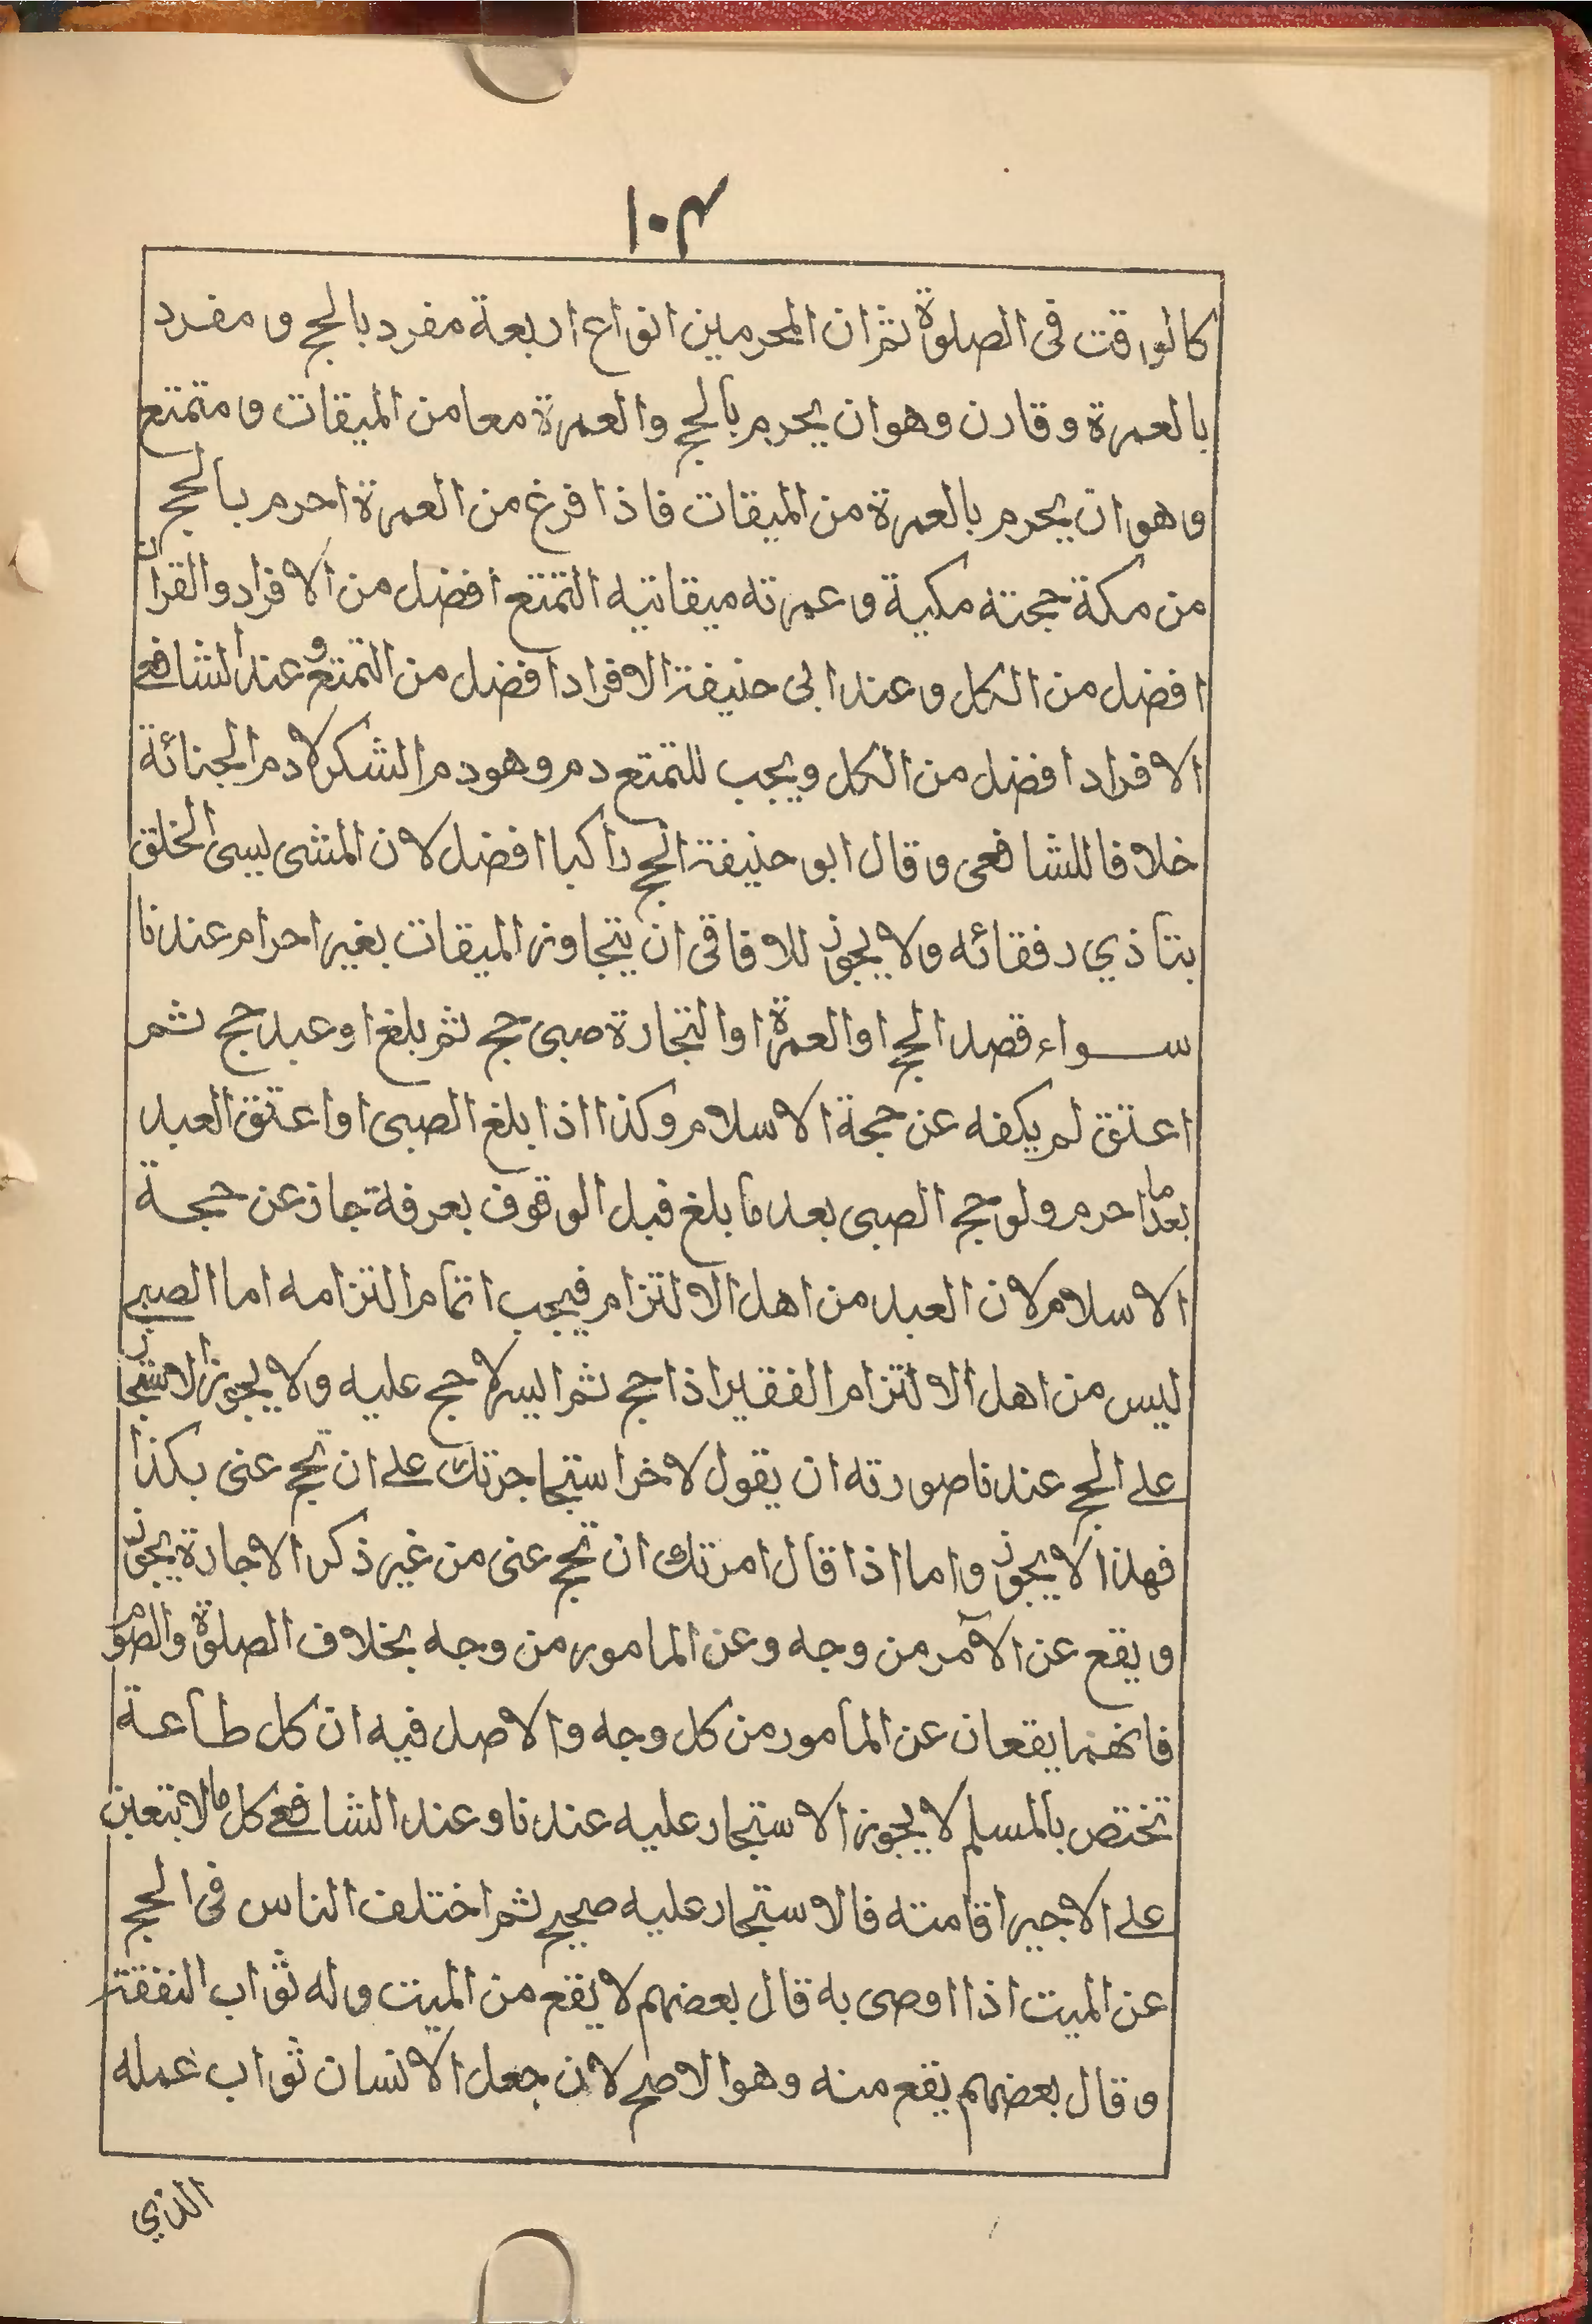 ١٠٣
كالوقت فى الصلوة ثم ان المحرمين انواع اربعة مفرد بالحج و مفرد
بالعمرة وقارن وهو ان يحرم بالحج والعمرة معا من الميقات ومتمتع
وهو ان يحرم بالعمرة من الميقات فاذا فرغ من العمرة احرم بالحج
من مكة حجته مكية وعمرته ميقاتيه التمتع افضل من الافراد والقران
افضل من الكل وعند ابى حنيفة الافراد افضل من التمتع وعند الشافعي
الافراد افضل من الكل ويجب للتمتع دم وهو دم الشكر لا دم الجنائة
خلافا للشافعى وقال ابو حنيفة الحج راكبا افضل لان المشى يسىء الخلق
بتاذي رفقائه ولا يجوز للافاقى ان يتجاوز الميقات بغير احرام عندنا
سواء قصد الحج او العمرة او التجارة صبى حج ثم بلغ او عبد حج ثم
اعتق لم يكفه عن حجة الاسلام وكذا اذا بلغ الصبى او اعتق العبد
بعد ما احرم ولو حج الصبى بعد ما بلغ قبل الوقوف بعرفة جاز عن حجة
الاسلام لان العبد من اهل الالتزام فيجب اتمام التزامه اما الصبي
ليس من اهل الالتزام الفقير اذا حج ثم ايسر لا حج عليه ولا يجوز الاستجار
على الحج عندنا صورته ان يقول لاخر استجاجرتك على ان تحج عنى بكذا
فهذا لا يجوز واما اذا قال امرتك ان تحج عنى من غير ذكر الاجارة يجوز
ويقع عن الآمر من وجه وعن المامور من وجه بخلاف الصلوة والصوم
فانهما يقعان عن المأمور من كل وجه والاصل فيه ان كل طاعة
تختص بالمسلم لا يجوز الاستجار عليه عندنا وعند الشافعي كل ما لا يتعين
على الاجير اقامته فالاستجار عليه صحيح ثم اختلف الناس فى الحج
عن الميت اذا اوصى به قال بعضهم لا يقع من الميت وله ثواب النفقة
وقال بعضهم يقع منه وهو الاصح لان جعل الانسان ثواب عمله
الذي